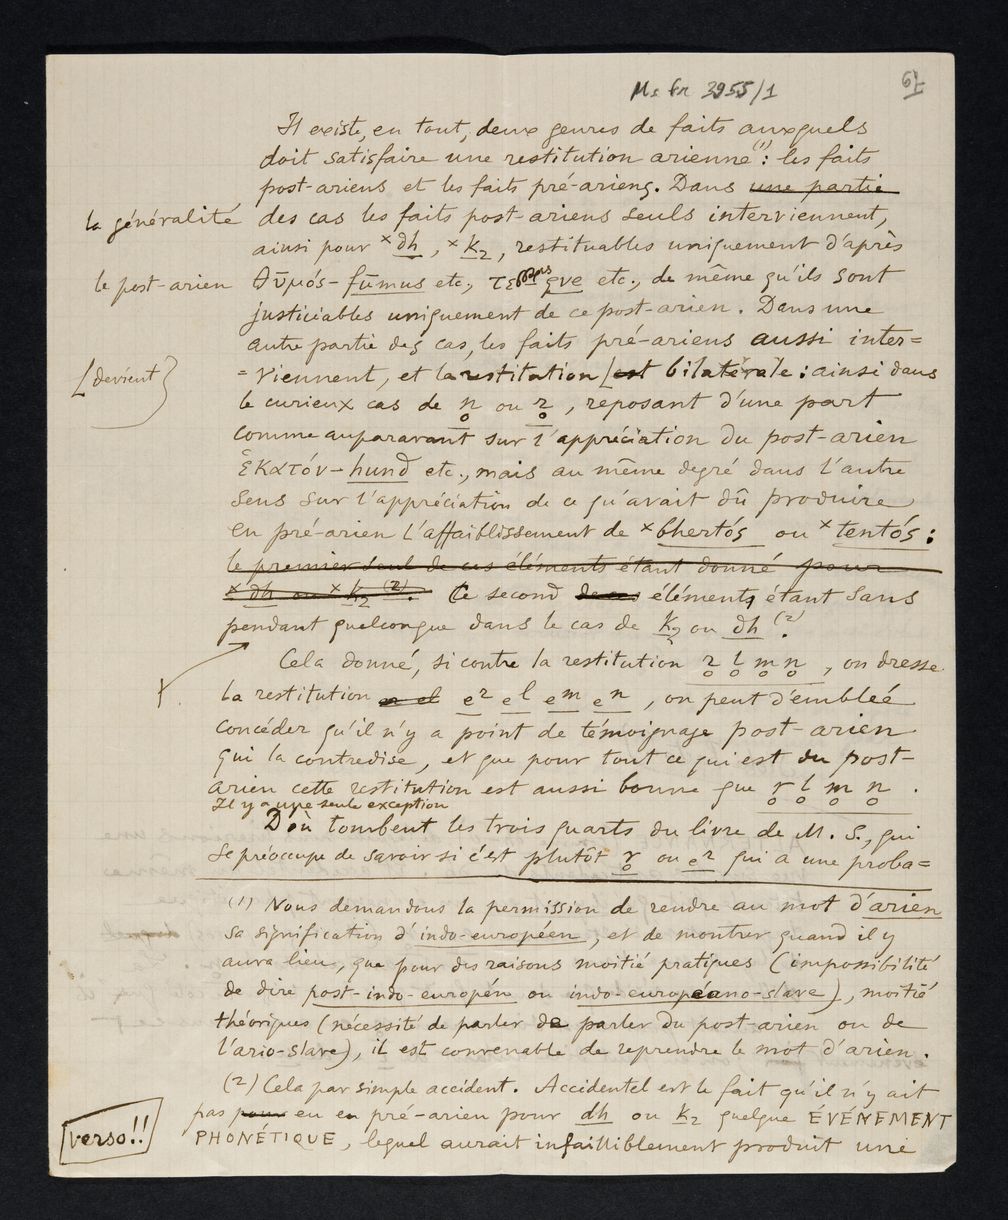 Ms fr 3955/1
67
Il existe, en tout, deux genres de faits auxquels
doit satisfaire une restitution arienne(1): les faits
post-ariens et les faits pré-ariens. Dans une partie
la généralité des cas les faits post-ariens seuls interviennent,
ainsi pour ×dh, ×k₂, restituables uniquement d'après
le post-arien θῡμός-fūmus etc., que etc., de même qu'ils sont
justiciables uniquement de ce post-arien. Dans une
autre partie des cas, les faits pré-ariens aussi inter=
=viennent, et la restitution [est bilatérale: ainsi dans
[devient]
le curieux cas de n̥ ou r̥, reposant d'une part
comme auparavant sur l'appréciation du post-arien
ἑκατόν-hund etc., mais au même degré dans l'autre
sens sur l'appréciation de ce qu'avait dû produire
en pré-arien l'affaiblissement de ×bhertós ou ×tentós:
le premier seul de ces éléments étant donné pour
×dh ou ×k₂ (2). Ce second de ces éléments étant sans
pendant quelconque dans le cas de k₂ ou dh (2).
Cela donné, si contre la restitution r̥ l̥ m̥ n̥, on dresse
la restitution er el em en, on peut d'emblée
concéder qu'il n'y a point de témoignage post-arien
qui la contredise, et que pour tout ce qui est du post-
arien cette restitution est aussi bonne que r̥ l̥ m̥ n̥.
Il y a une seule exception
D'où tombent les trois quarts du livre de M. S., qui
se préoccupe de savoir si c'est plutôt r̥ ou er qui a une proba=
(1) Nous demandons la permission de rendre au mot d'arien
sa signification d'indo-européen, et de montrer quand il y
aura lieu, que pour des raisons moitié pratiques (impossibilité
de dire post-indo-européen ou indo-européano-slave), moitié
théoriques (nécessité de parler de parler du post-arien ou de
l'ario-slave), il est convenable de reprendre le mot d'arien.
(2) Cela par simple accident. Accidentel est le fait qu'il n'y ait
pas pour eu en pré-arien pour dh ou k₂ quelque ÉVÉNEMENT
PHONÉTIQUE, lequel aurait infailliblement produit une
verso!!